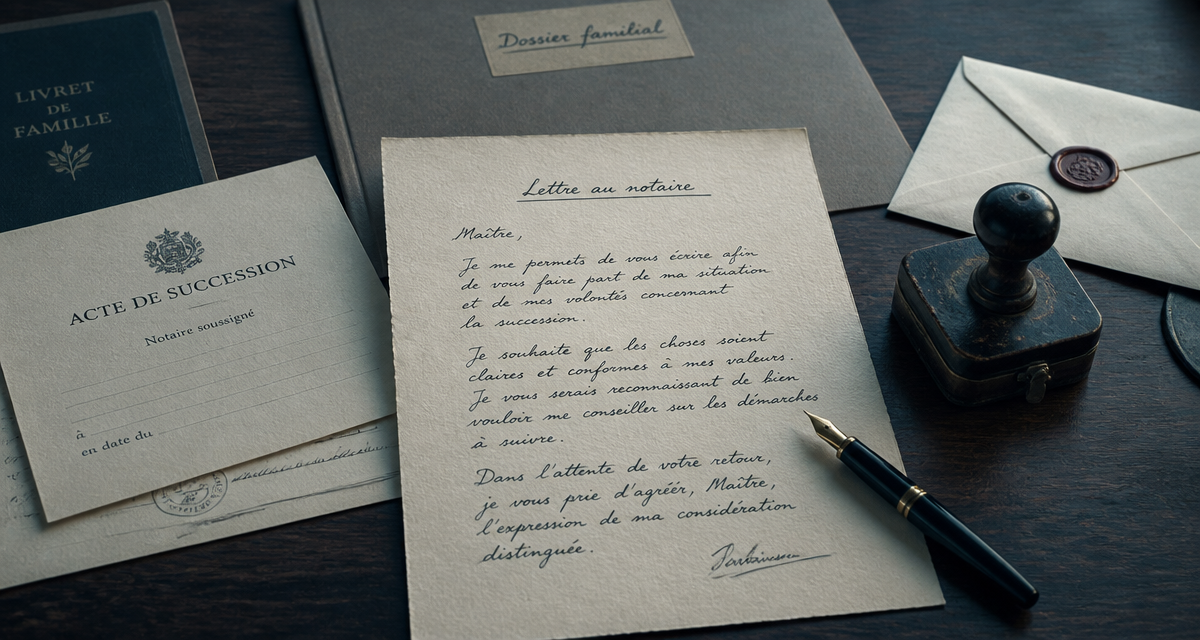 LIVRET
DE
FAMILLE
Dossier familial
ACTE DE SUCCESSION
Notaire soussigné
à
en date du
Lettre au notaire
Maître,
Je me permets de vous écrire afin
de vous faire part de ma situation
et de mes volontés concernant
la succession.
Je souhaite que les choses soient
claires et conformes à mes valeurs.
Je vous serais reconnaissant de bien
vouloir me conseiller sur les démarches
à suivre.
Dans l'attente de votre retour,
je vous prie d'agréér, Maître,
l'expression de ma considération
distinguée.